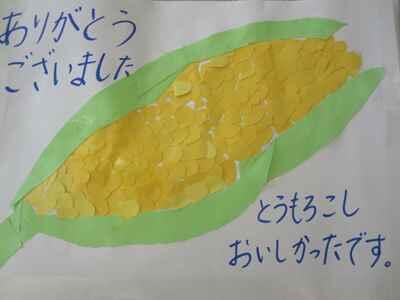 ありがとう
ございました
とうもろこし
おいしかったです。